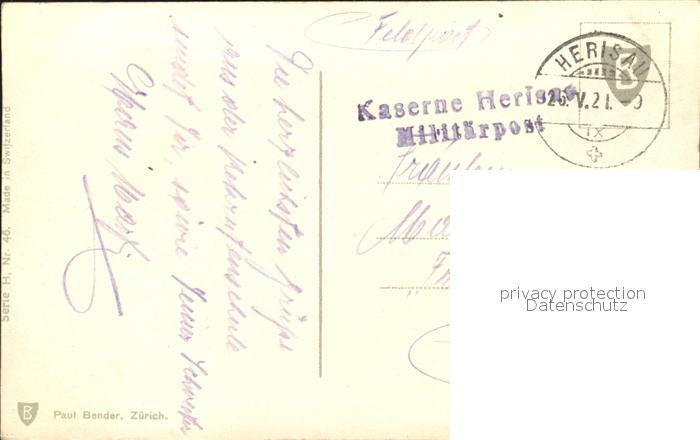 Feldpost
HERISAU
26.V.21.
IX
Kaserne Herisau
Militärpost
Fräulein
Die herzlichsten Grüsse
aus der Rekrutenschule
sendet Dir, sowie Deiner Schwester
privacy protection
Datenschutz
Serie H, Nr. 46. Made in Switzerland
B
Paul Bender, Zürich.